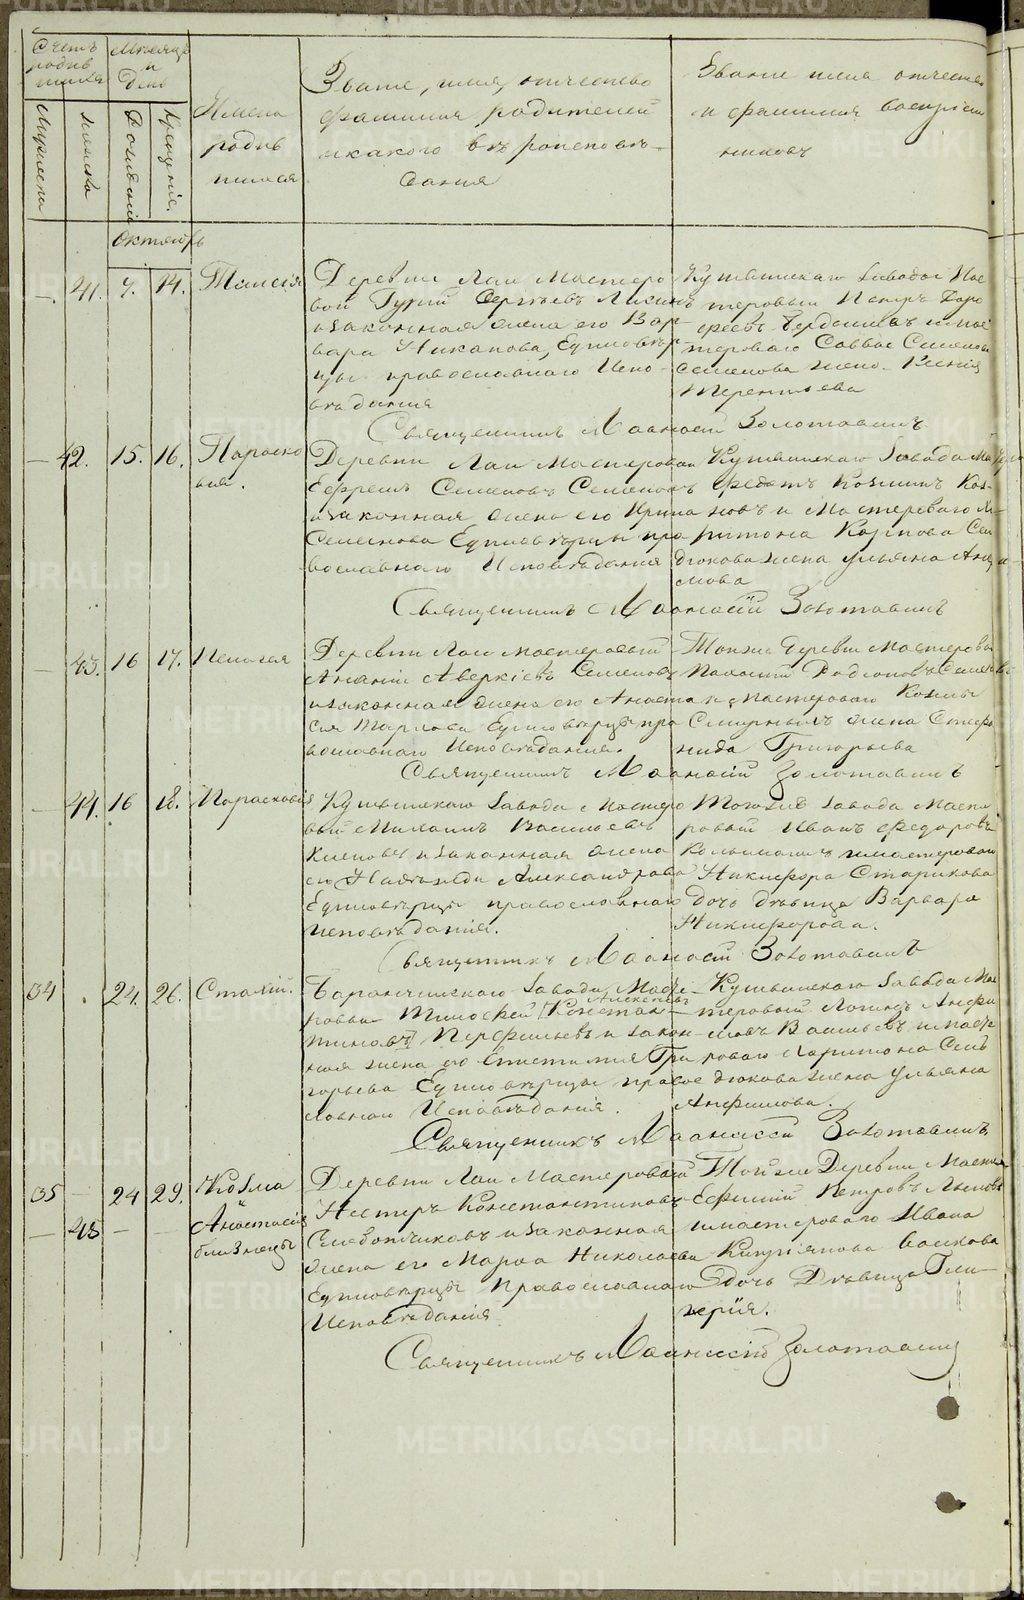 METRIKI.GASO-URAL.RU
Счетъ родившихся
Мужеска
женска
Мѣсяцъ и День
Рожденія
Крещенія
Имена родившихся
Званіе, имя, отчество
фамилія родителей
и какого вѣроисповѣ-
данія
Званіе имя отчество
и фамилія воспріем
никовъ
Октябрь
41. 9. 14. Таисія
Деревни Лаи Мастеро
вой Гурій Сергѣевъ
и законная жена его Вар
вара Никанова, Единовѣр
цы православнаго Испо-
вѣданія
Кушвинскаго Завода Мас
теровый Петръ Доро
феевъ и мас
тероваго Саввы Семенова
Семенова жена Ксенія
Терентьева
Священникъ Аѳанасій Золотавинъ
42. 15. 16. Параско
вія.
Деревни Лаи Мастеровой
Ефремъ Семеновъ Семеновъ
и законная жена его Ирина
Семенова Единовѣрцы пра
вославнаго Исповѣданія
Кушвинскаго Завода Ма
Федотъ Козминъ Коз-
новъ и Мастероваго Ха
ритона Карпова Сем
дюкова жена Ульяна Анфи
лова
Священникъ Аѳанасій Золотавинъ
43. 16 17. Пелагея
Деревни Лаи мастеровый
Ананій Аверкіевъ Семеновъ
и законная жена его Анаста
сія Карпова Единовѣрцы пра
вославнаго Исповѣданія.
Тойже Деревни Мастеровый
Родіоновъ Семеновъ
и Мастероваго Козмы
Смирныхъ жена Степа
нида Григорьева
Священникъ Аѳанасій Золотавинъ
44. 16 18. Парасковія
Кушвинскаго Завода Мастеро
вый Михаилъ Васильевъ
и законная жена
его Надежда Александрова
Единовѣрцы православнаго
Исповѣданія.
Тогоже Завода Масте
ровый Иванъ Федоровъ
и мастероваго
Никифора Старикова
Дочь Дѣвица Варвара
Никифорова.
Священникъ Аѳанасій Золотавинъ
34 24. 26. Стахій.
Баранчинскаго Завода Масте
ровый Тимофей [Констан-
Алексѣевъ
тиновъ] Перфильевъ и закон
ная жена его Епистимія Гри
горьева Единовѣрцы правос
лавнаго Исповѣданія.
Кушвинскаго Завода Мас
теровый Логинъ Анфи
ловъ Васильевъ и масте
роваго Харитона Сем
дюкова жена Ульяна
Анфилова.
Священникъ Аѳанасій Золотавинъ
35 24 29. Козма
45 Анастасія
близнецы
Деревни Лаи Мастеровый
Нестеръ Константиновъ
Слободчиковъ и законная
жена его Марѳа Николаева
Единовѣрцы Православнаго
Исповѣданія
Тойже Деревни Масте
Ефимій Петровъ
и мастероваго Ивана
Кипріянова Волкова
Дочь Дѣвица Гли-
керія.
Священникъ Аѳанасій Золотавинъ